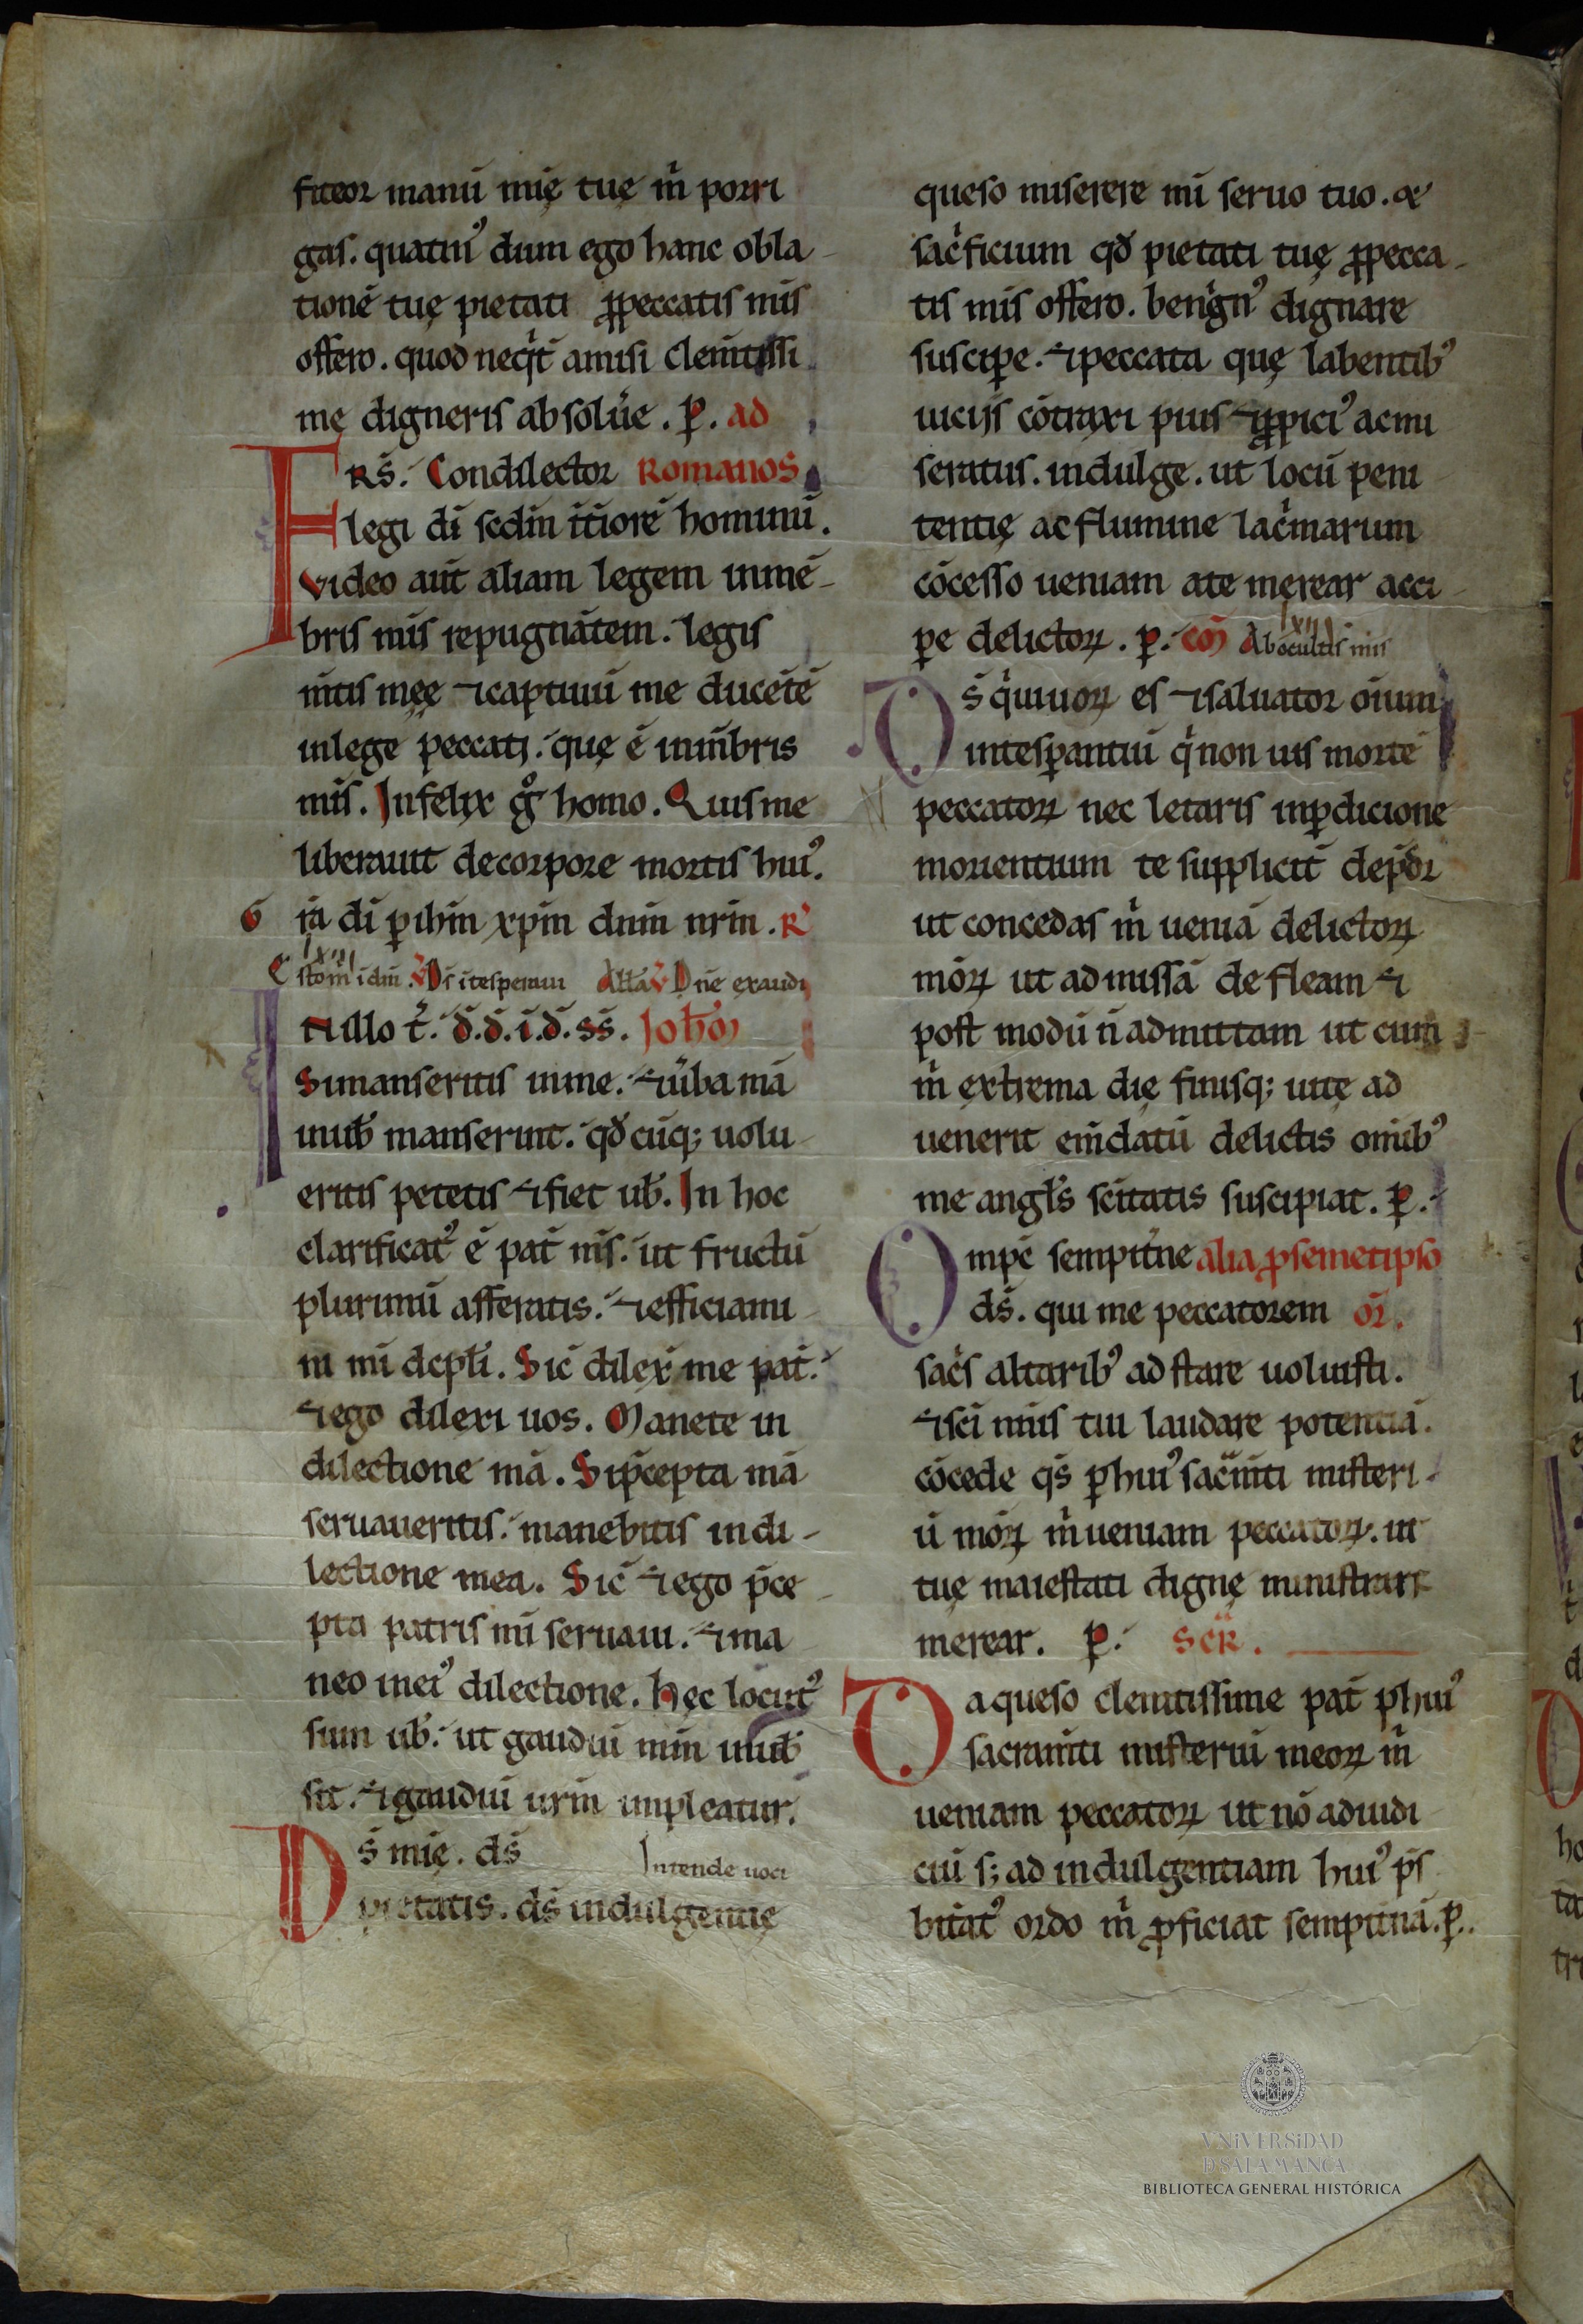 fiteor manū mię tuę m̄ porri
gas. quatin᷒ dum ego hanc obla-
tionē tuę pietati ꝓpeccatis mīs
offero. quod neq̇t amisi clem̄tissi
mę digneris absolūe. p̱. ad
FRS̄. Condilector Romanos
legi dī scdm īt̄iorē hominū.
video aūt aliam legem inmē-
bris mīs repugnātem. legis
m̄tis męę ⁊captiuū me ducētē
inlege peccati. quę ē inm̄bris
mīs. Infelix gͦ homo. Quis me
liberauit decorpore mortis hui᷒.
G ra dī ꝑ ihm̄ xpm̄ dnm̄ nrm̄. R᷒
lxiii
E stom̄ idm̄. V Ds̄ ītesperaui Alla V Dn̄e exaudi
INillo t̄. d̄.d̄.i.d̄.ss̄. Johm̄
Simanseritis inme. ⁊ūba mā
inuƀ manserint. qđcūq; uolu
eritis petetis ⁊fiet uƀ. In hoc
clarificat᷒ ē pat̄ mīs. ut fructū
plurimū afferatis. ⁊efficiami
ni mī dcpłi. Sic̄ dilex̄ me pat̄.
⁊ego dilexi uos. Manete in
dilectione mā. Sip̄cepta mā
seruaueritis. manebitis indi-
lectione mea. Sic̄ ⁊ego p̄ce
pta patris mī seruaui. ⁊ma
neo inei᷒ dilectione. Hęc locut᷒
sum uƀ. ut gaudiū mm̄ inuƀ
sit. ⁊gaudiū urm̄ impleatur.
DS̄ mię. ds̄ Intende uoci
pietatis. ds̄ indulgentię
queso miserere mī seruo tuo. &
sac̄ficium qđ pietati tuę ꝓpecca-
tis mīs offero. benign᷒ dignare
suscipe. ⁊peccata quę labentib᷒
uicijs cōtraxi pius ⁊ꝓpici᷒ acmi
seratus. indulge. ut locū peni
tentię ac flumine lac̄marum
cōcesso ueniam ate męrear acci
pe delictoꝝ. p̱. cōm lxiii Abocultis mīs
DS̄ q̇uiuoꝝ es ⁊saluator oīum
intesꝑantiū q̇non uis mortē
peccatoꝝ nec letaris inꝑdicione
morientium te supplicit̄ dep̄cor
ut concedas m̄ ueniā delictoꝝ
mōꝝ ut admissā defleam ⁊
post modū n̄admittam ut cum
m̄ extrema dię finisq; uitę ad
uenerit em̄datū delictis om̄ib᷒
me angłs sc̄itatis suscipiat. p̱.
Omp̄c sempit̄ne alia ꝓsemetipso
ds̄. qui me peccatorem or̄.
sac̄s altarib᷒ ad stare uoluisti.
⁊sc̄i n̄nīs tui laudare potentiā.
cōcede qs̄ ꝑhui᷒ sac̄m̄ti misteri-
ū mōꝝ m̄ueniam peccatoꝝ. ut
tuę maiestati dignę ministrare
merear. p̱. SCR̄.
Da queso clem̄tissime pat̄ ꝑhui᷒
sacram̄ti misteriū meoꝝ m̄
ueniam peccatoꝝ ut nō adiudi
ciū s; ad indulgentiam hui᷒ p̄s
bit̄at᷒ ordo m̄ ꝓficiat sempit̄nā. p̱.
VNiVERSiDAD
D SALAMANCA
BIBLIOTECA GENERAL HISTÓRICA